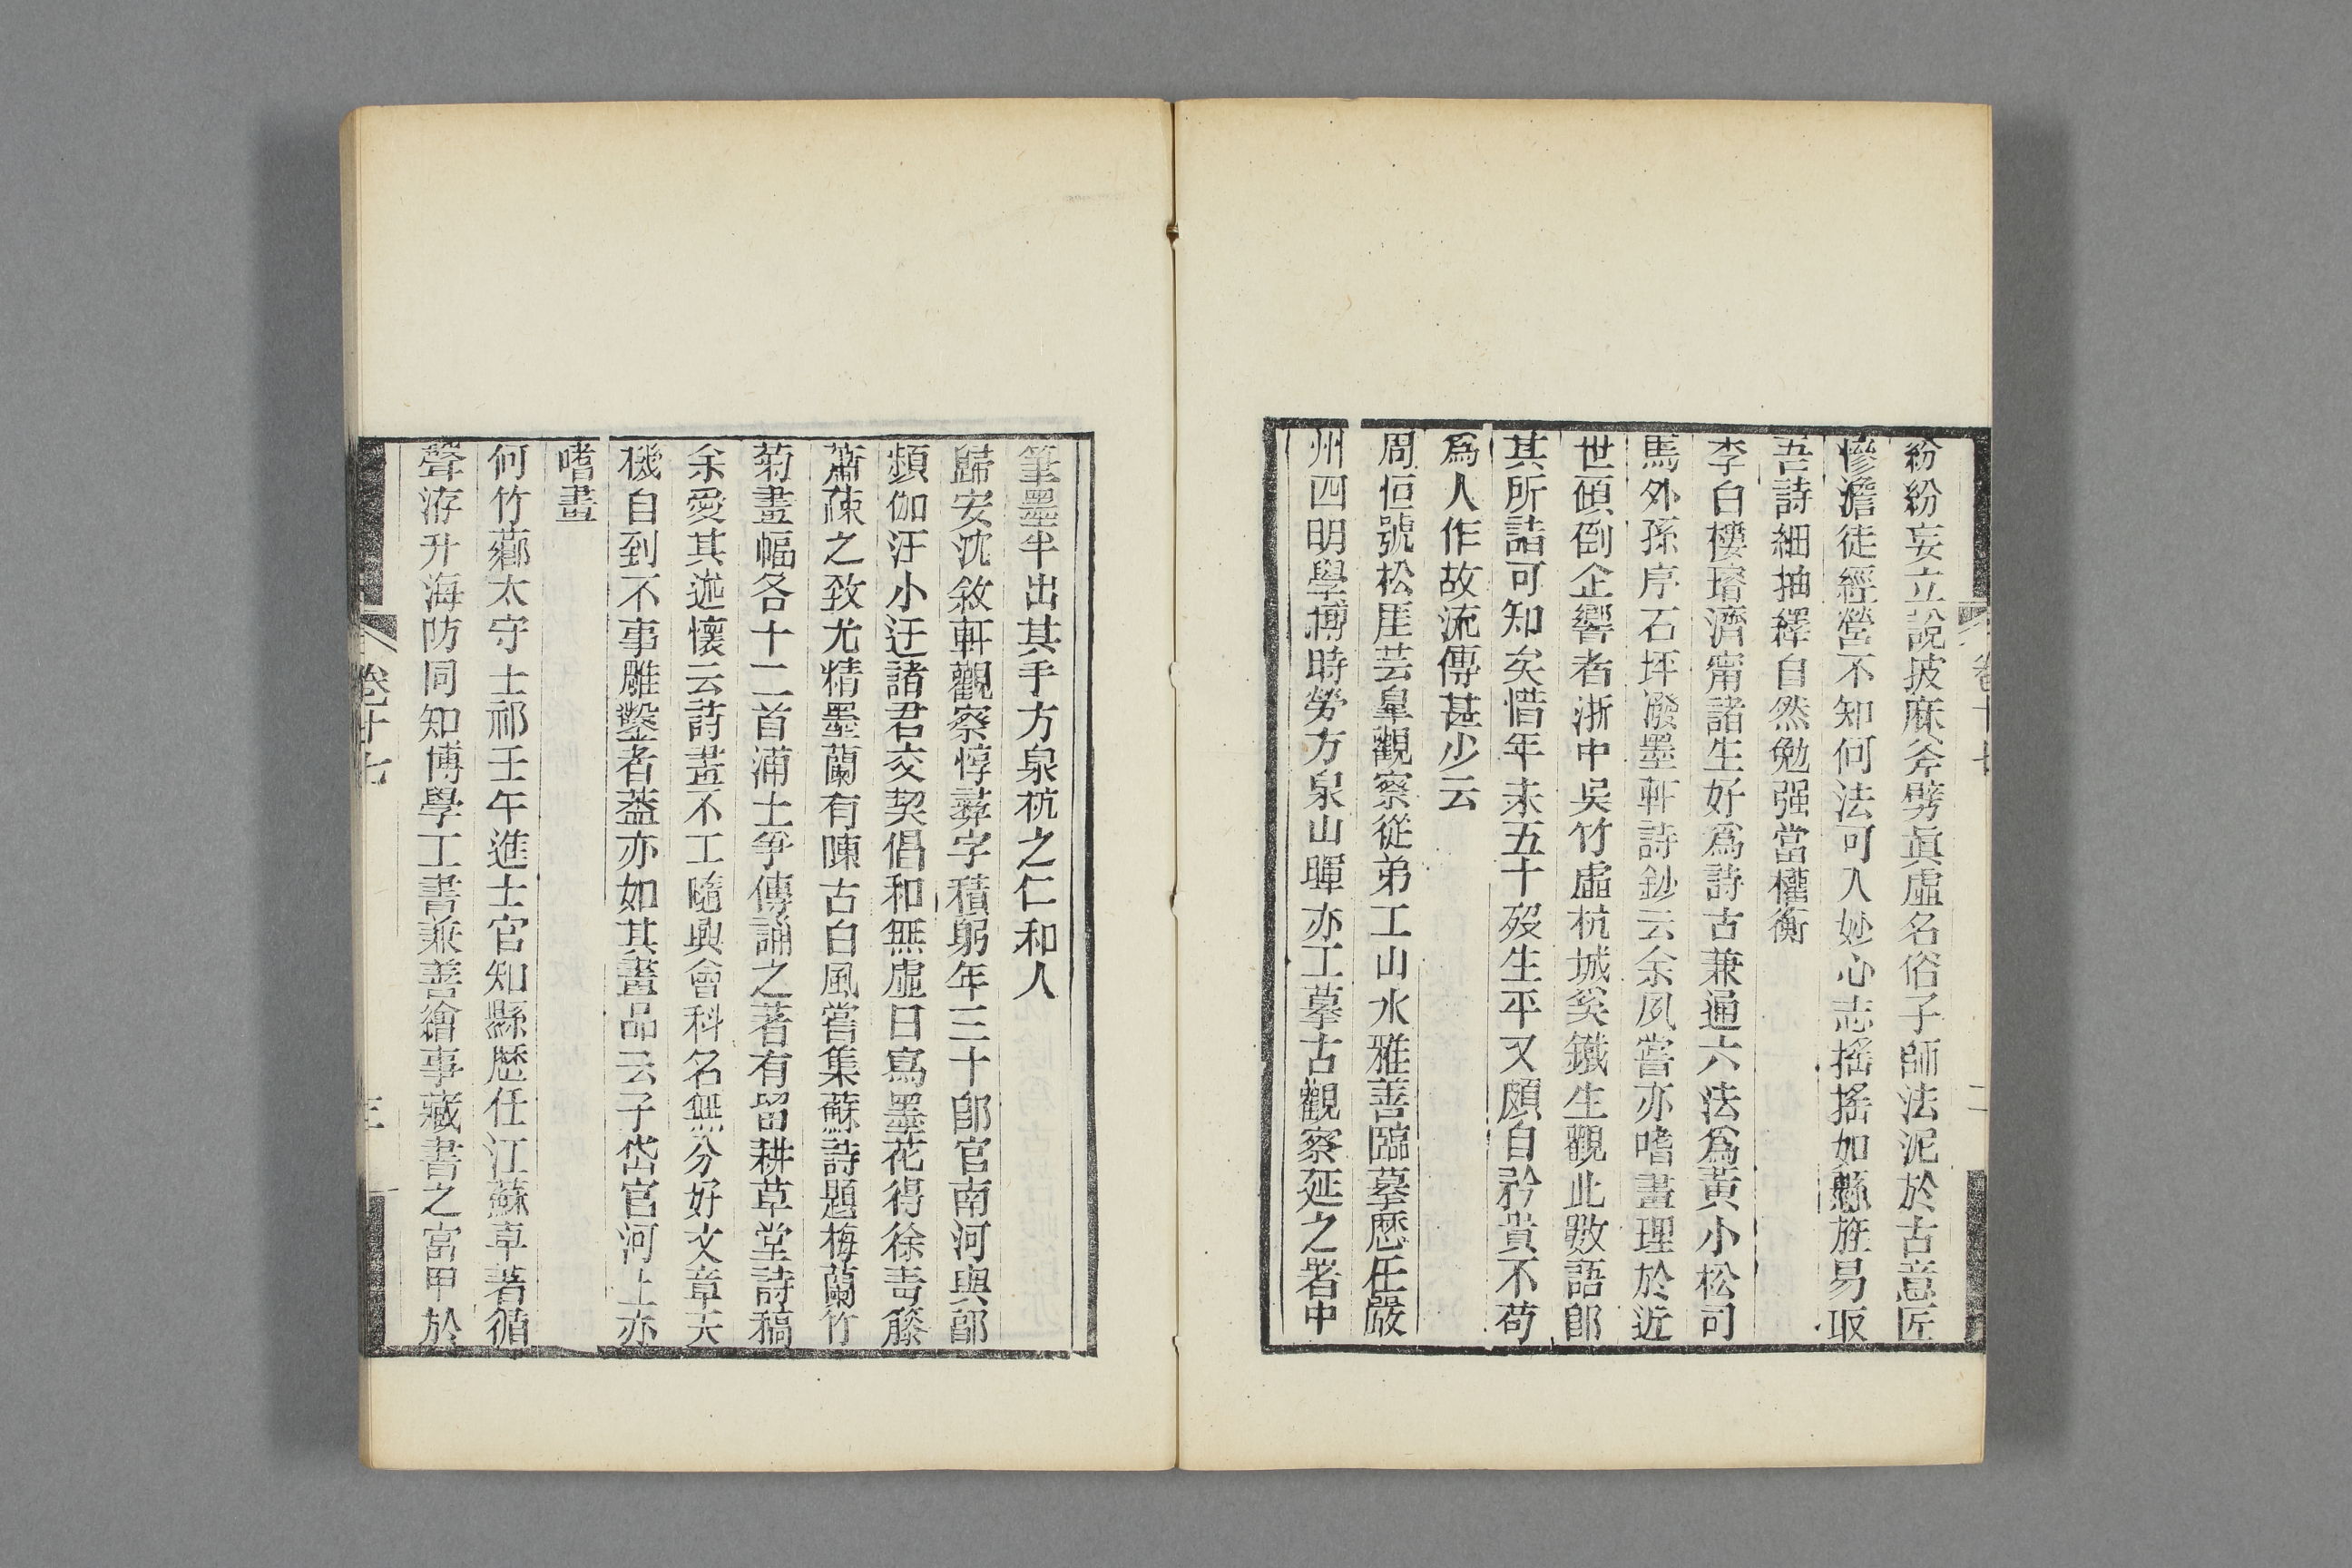 紛紛妄立說披麻斧劈眞虛名俗子師法泥於古意匠
慘澹徒經營不知何法可入妙心志搖搖如懸旌易取
吾詩細抽繹自然勉强當權衡
李白樓瑢濟甯諸生好爲詩古兼通六法爲黃小松司
馬外孫序石坪潑墨軒詩鈔云余夙嘗亦嗜畫理於近
世傾倒企響者浙中吳竹虛杭城奚鐵生觀此數語卽
其所詣可知矣惜年未五十歿生平又頗自矜貴不苟
爲人作故流傳甚少云
周恒號松厓芸皐觀察從弟工山水雅善臨摹歷任嚴
州四明學博時勞方泉山暉亦工摹古觀察延之署中
筆墨半出其手方泉杭之仁和人
歸安沈敘軒觀察惇彝字積躬年三十卽官南河與郭
頻伽汪小迂諸君交契倡和無虛日寫墨花得徐靑籐
蕭疎之致尤精墨蘭有陳古白風嘗集蘇詩題梅蘭竹
菊畫幅各十二首浦土爭傳誦之著有留耕草堂詩稿
余愛其述懷云詩畫不工隨興會科名無分好文章天
機自到不事雕鑿者葢亦如其畫品云子岱官河上亦
嗜畫
何竹薌太守士祁壬午進士官知縣歷任江蘇卓著循
聲洊升海防同知博學工書兼善繪事藏書之富甲於
卷十七
三